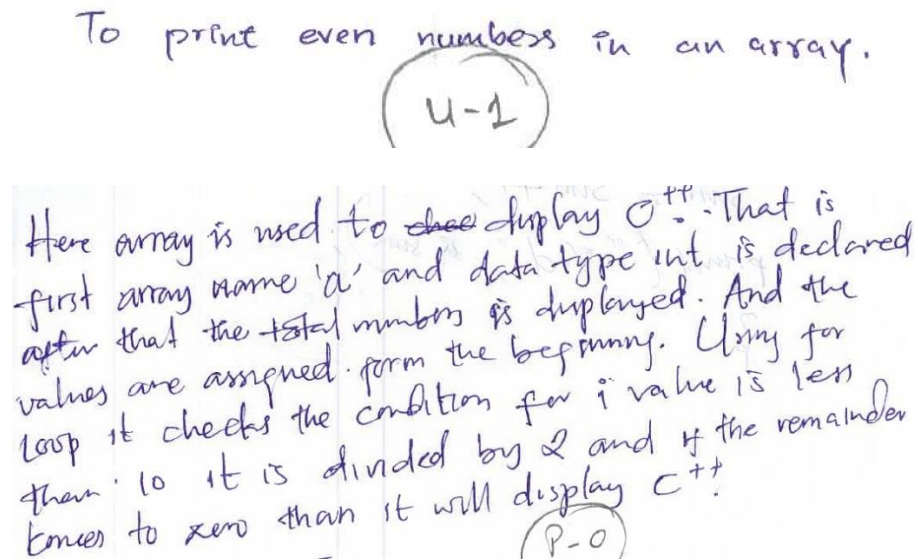 To print even numbers in an array.
U-1
Here array is used to display C++. That is
first array name 'a' and data type int is declared
after that the total numbers is displayed. And the
values are assigned form the beginning. Using for
Loop it checks the condition for i value is less
than 10 it is divided by 2 and if the remainder
to zero than it will display C++.
P-0